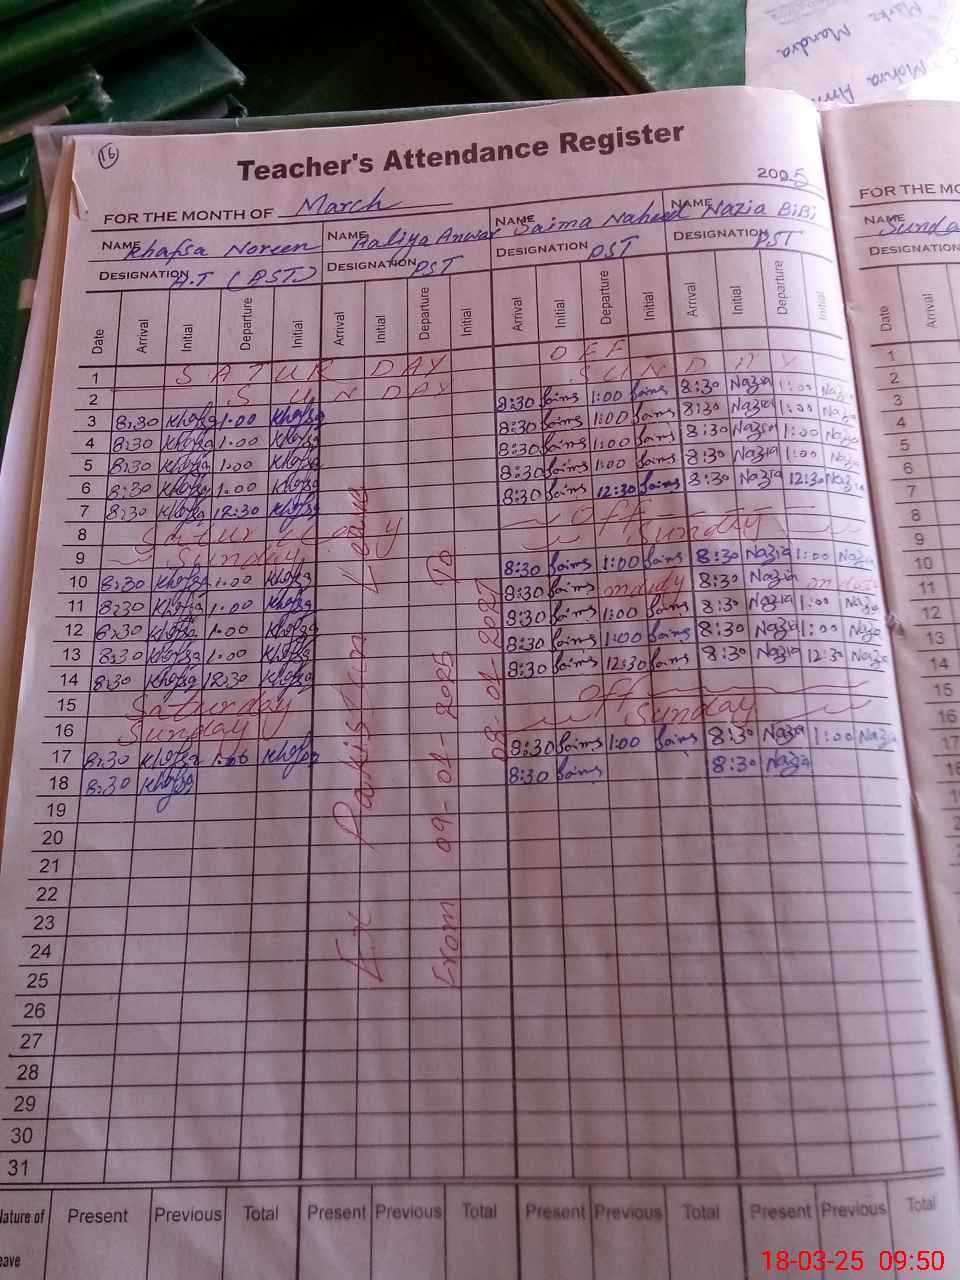 Marks
Mandra
Mohra
16
Teacher's Attendance Register
2025
FOR THE MONTH OF March
NAME Khafsa Noreen NAME Aaliya Anwar NAME Saima Naheed NAME Nazia BiBi
DESIGNATION A.T (PST) DESIGNATION PST DESIGNATION PST DESIGNATION PST
Date Arrival Initial Departure Initial Arrival Initial Departure Initial Arrival Initial Departure Initial Arrival Initial Departure Initial
1 SATURDAY OFF
2 SUNDAY SUNDAY
3 8:30 Khafsa 1:00 Khafsa 8:30 Saima 1:00 Saima 8:30 Nazia 1:00 Nazia
4 8:30 Khafsa 1:00 Khafsa 8:30 Saima 1:00 Saima 8:30 Nazia 1:00 Nazia
5 8:30 Khafsa 1:00 Khafsa 8:30 Saima 1:00 Saima 8:30 Nazia 1:00 Nazia
6 8:30 Khafsa 1:00 Khafsa 8:30 Saima 1:00 Saima 8:30 Nazia 1:00 Nazia
7 8:30 Khafsa 12:30 Khafsa 8:30 Saima 12:30 Saima 8:30 Nazia 12:30 Nazia
8 Saturday Off
9 Sunday Sunday
10 8:30 Khafsa 1:00 Khafsa 8:30 Saima 1:00 Saima 8:30 Nazia 1:00 Nazia
11 8:30 Khafsa 1:00 Khafsa 8:30 Saima on duty 8:30 Nazia on duty
12 8:30 Khafsa 1:00 Khafsa 8:30 Saima 1:00 Saima 8:30 Nazia 1:00 Nazia
13 8:30 Khafsa 1:00 Khafsa 8:30 Saima 1:00 Saima 8:30 Nazia 1:00 Nazia
14 8:30 Khafsa 12:30 Khafsa 8:30 Saima 12:30 Saima 8:30 Nazia 12:30 Nazia
15 Saturday Off
16 Sunday Sunday
17 8:30 Khafsa 1:00 Khafsa 8:30 Saima 1:00 Saima 8:30 Nazia 1:00 Nazia
18 8:30 Khafsa 8:30 Saima 8:30 Nazia
19
20
21
22
23
24
25
26
27
28
29
30
31
Ex Pakistan Leave
From 09-01-2025 To
08-01-2027
Nature of Present Previous Total Present Previous Total Present Previous Total Present Previous Total
eave
FOR THE MO
NAME Sunda
DESIGNATION
Date Arrival
1
2
3
4
5
6
7
8
9
10
11
12
13
14
15
16
17
18-03-25 09:50